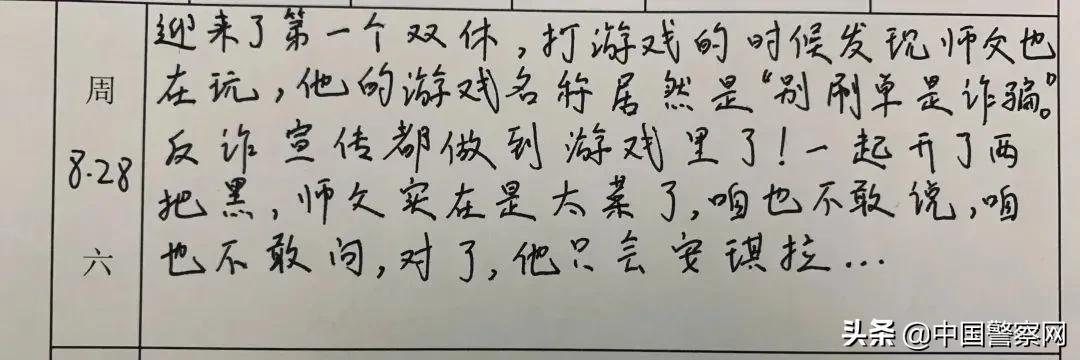 迎来了第一个双休，打游戏的时候发现师父也
周
在玩，他的游戏名称居然是“别刷单是诈骗”。
反诈宣传都做到游戏里了！一起开了两
8.28
把黑，师父实在是太菜了，咱也不敢说，咱
六
也不敢问，对了，他只会安琪拉...
头条@中国警察网